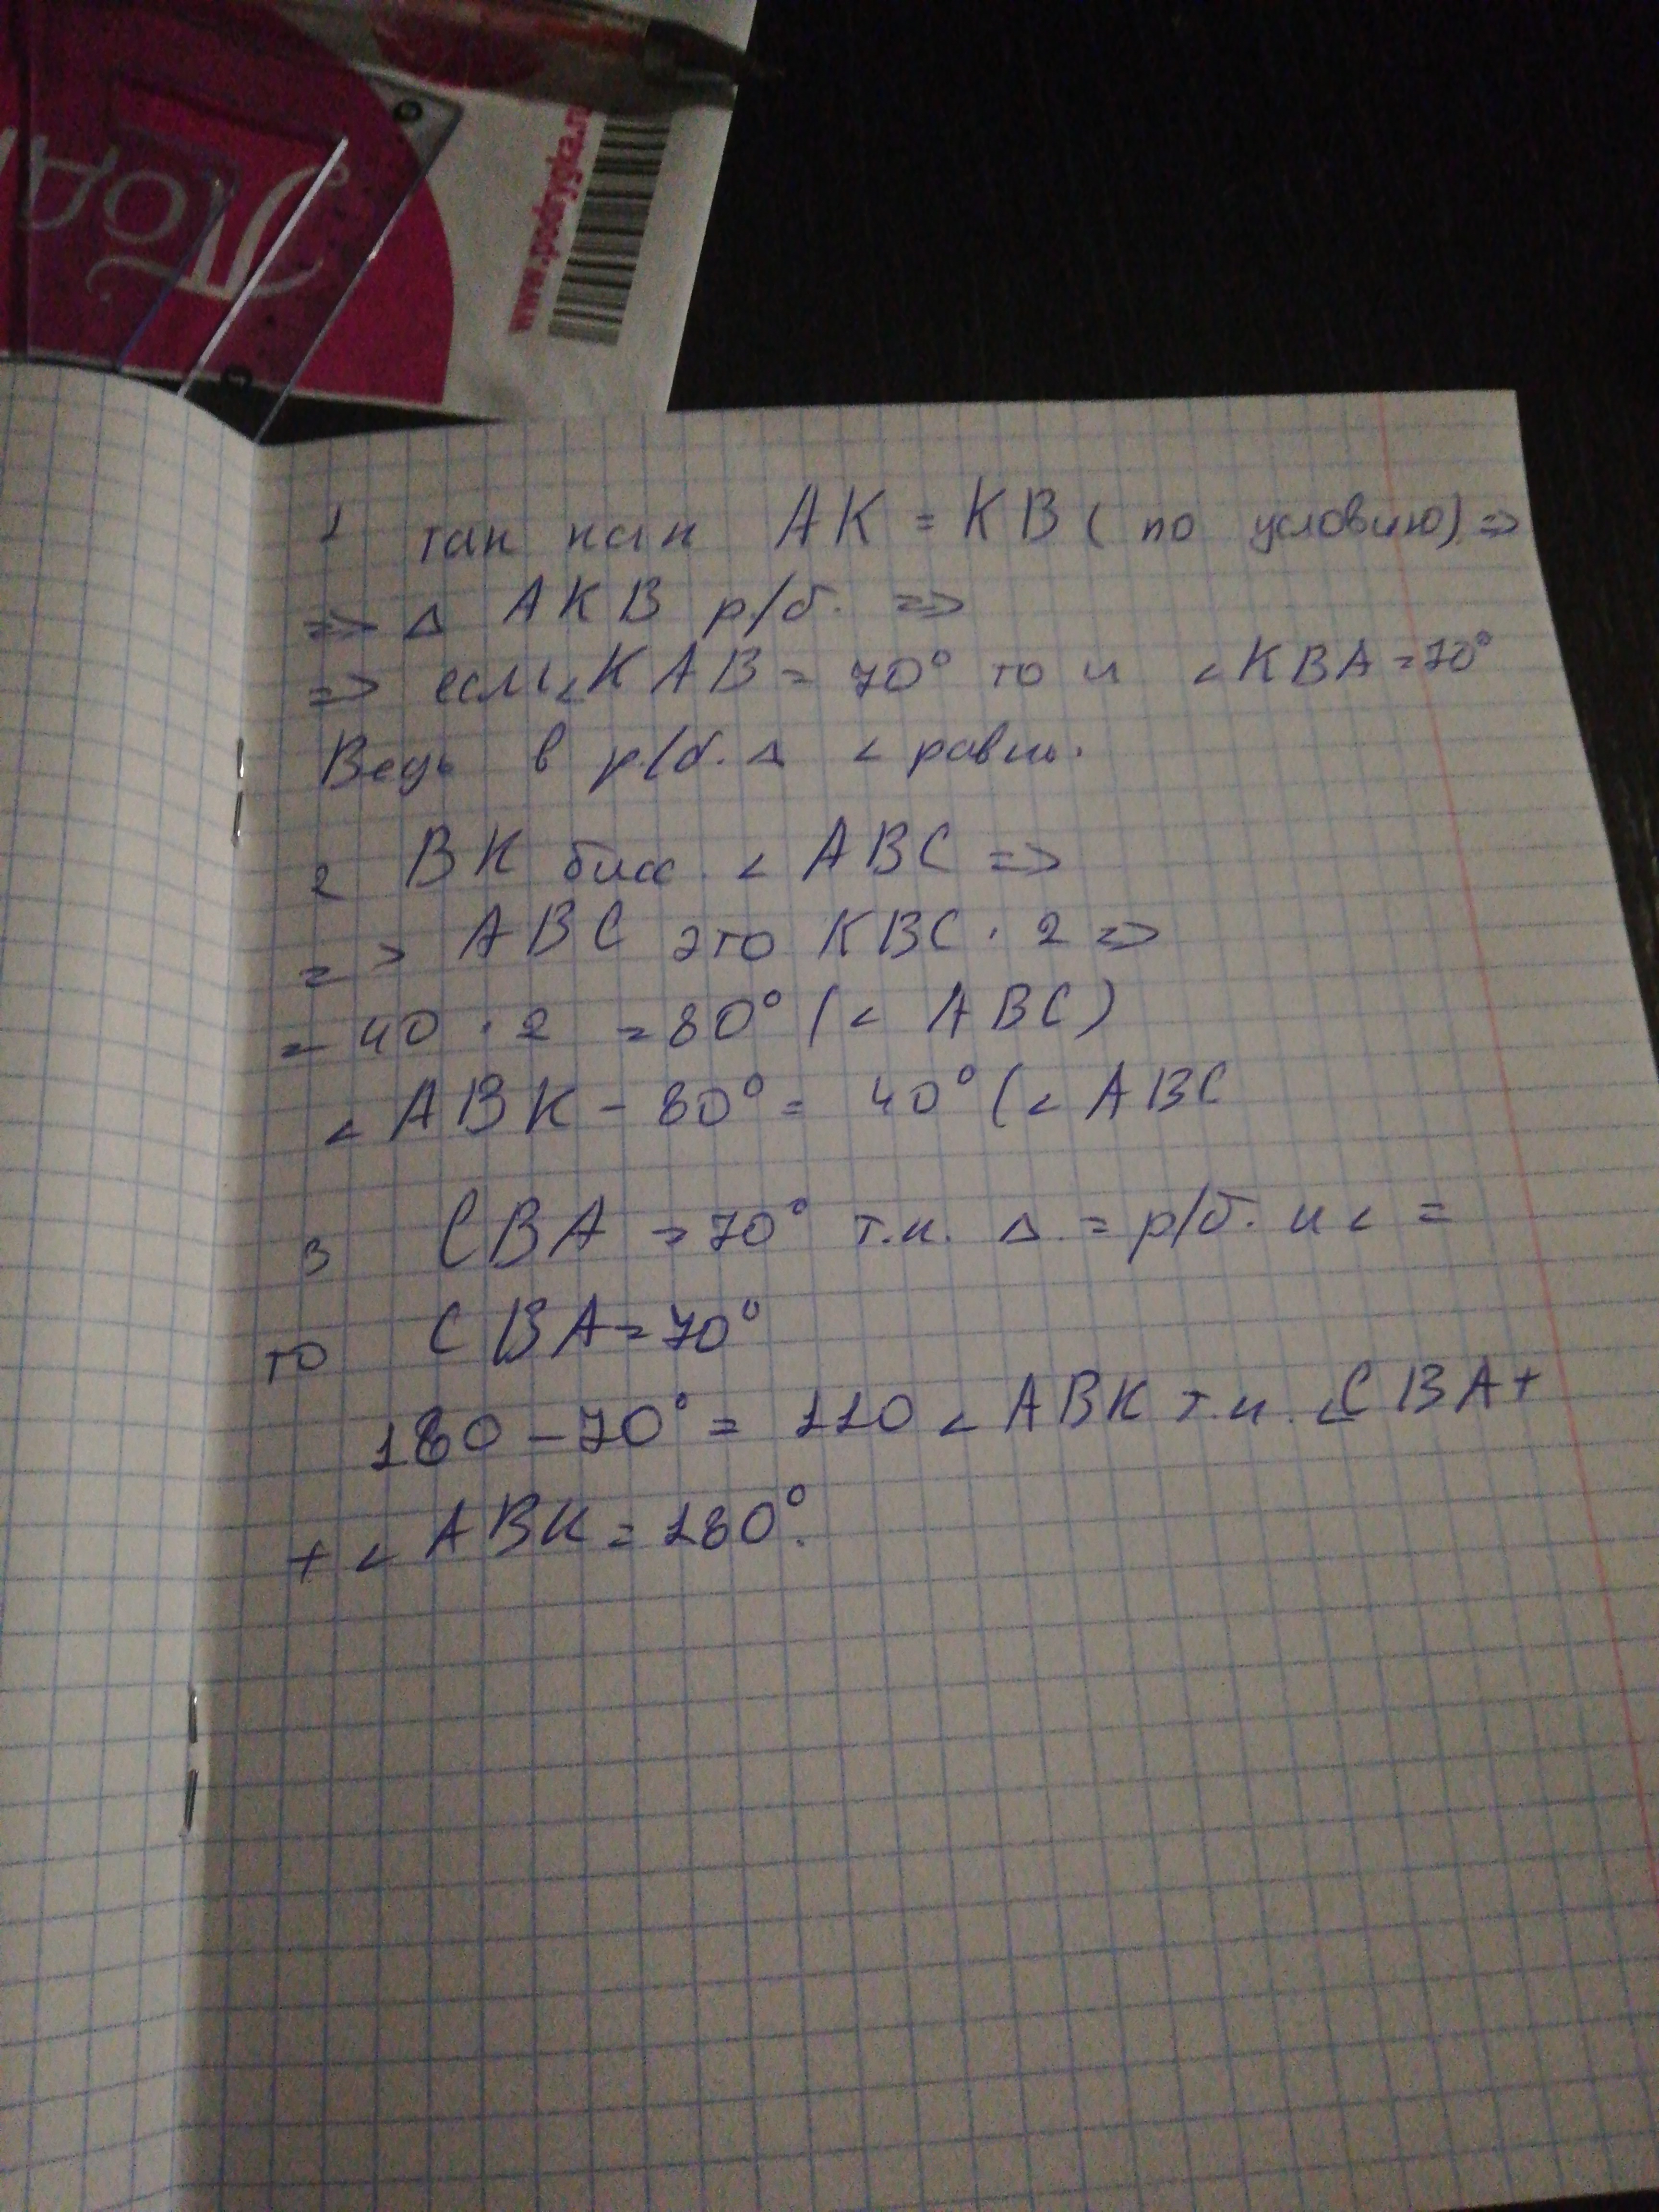 www.podrygka.ru
1 так как AK = KB ( по условию) =>
=> △ AKB р/б. =>
=> если ∠KAB = 70° то и ∠KBA = 70°
Ведь в р/б. △ ∠ равны.
2 BK бисс. ∠ ABC =>
=> ABC это KBC · 2 =>
= 40 · 2 = 80° (∠ ABC)
∠ ABK - 80° = 40° (∠ ABC
3 CBA = 70° т.к. △ = р/б. и ∠ =
то CBA = 70°
180 - 70° = 110 ∠ ABK т.к. ∠CBA+
+ ∠ ABK = 180°.